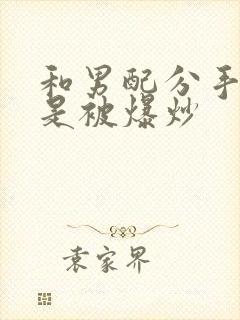 和男配分手
是被爆炒
袁家界